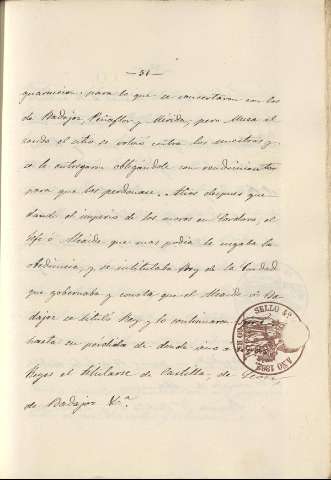 — 51 —
guarnicion, para lo que se concertaron con los
de Badajoz, Peñaflor y Merida, pero Muza al
el sitio se volvió contra los nuestros y
se le entregaron obligandole con rendimientos
para que los perdonase. Años despues que-
dando el imperio de los moros en Cordova, el
Gefe ó Alcaide que mas podia le negaba la
obediencia, y se intitulaba Rey de la Ciudad
que gobernaba y consta que el Alcaide de Ba-
dajoz se tituló Rey, y lo continuaron
hasta su perdida de donde vino a
Reyes el titularse de Castilla, de Leon,
de Badajoz &.ª
SELLO 4º
AÑO 1892